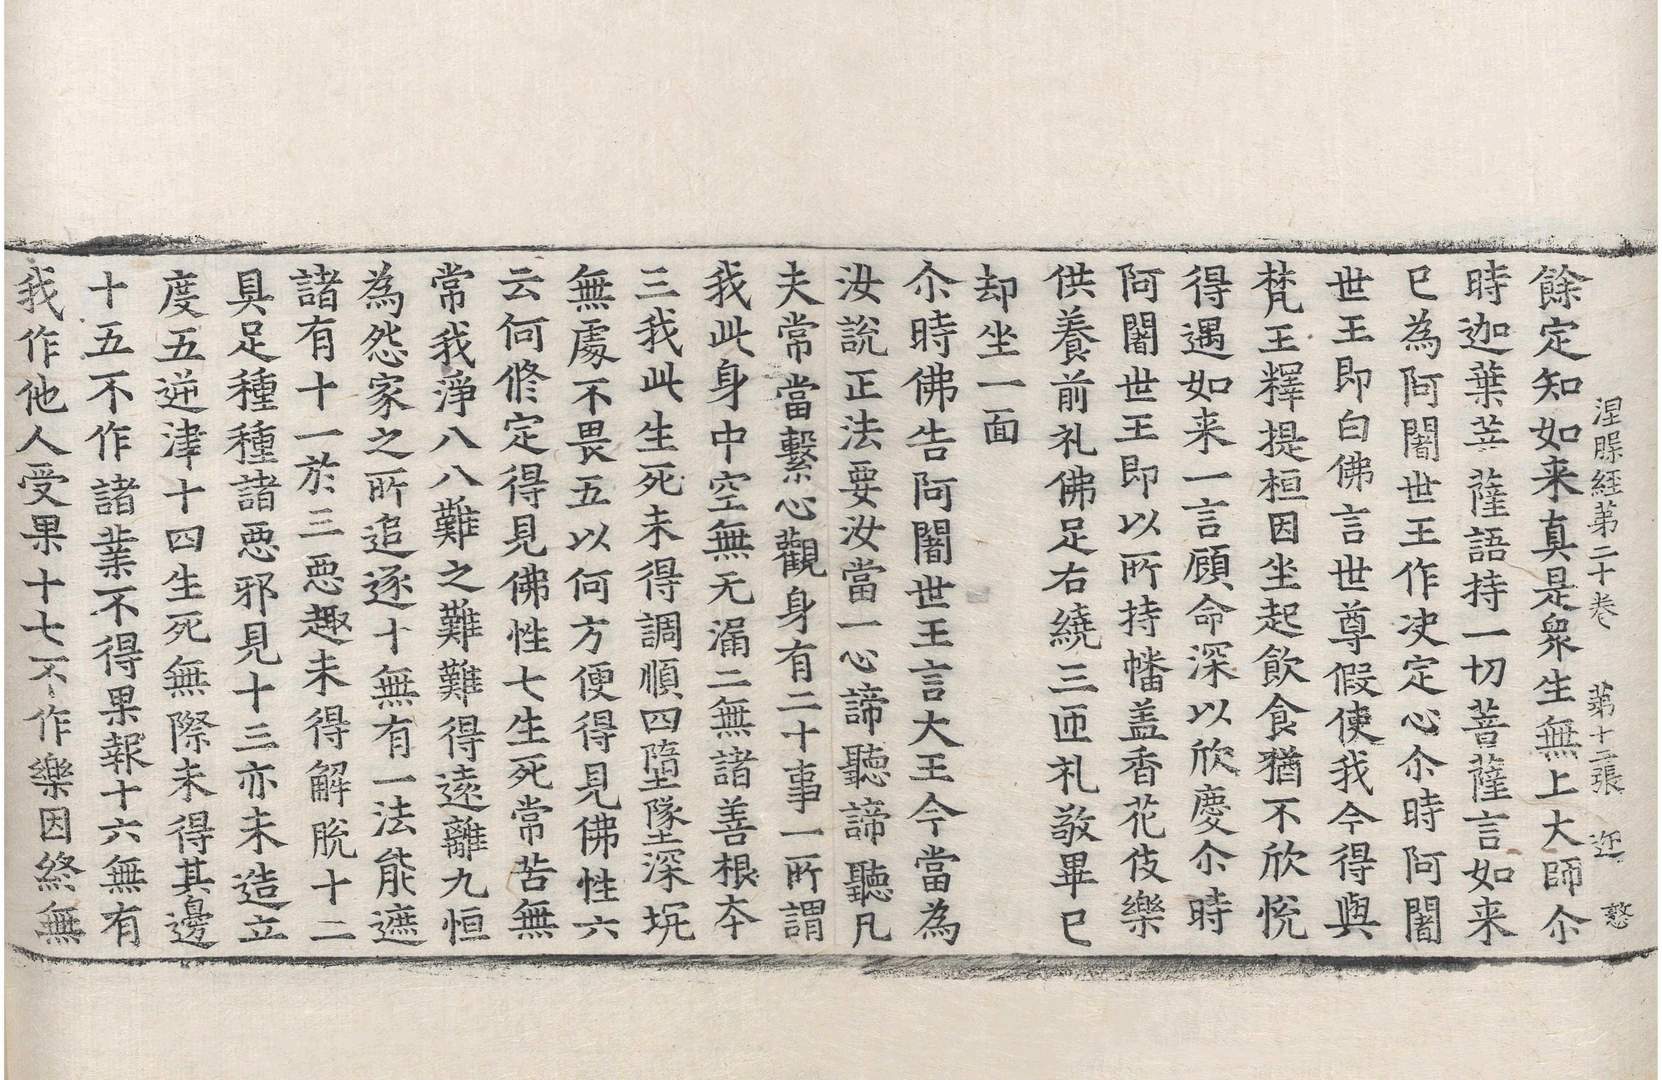 涅槃経第二十巻　第十二張　迩　慗
餘定知如来真是衆生無上大師尒
時迦葉菩薩語持一切菩薩言如来
已為阿闍世王作决定心尒時阿闍
世王即白佛言世尊假使我今得與
梵王釋提桓因坐起飲食猶不欣悅
得遇如来一言顧命深以欣慶尒時
阿闍世王即以所持幡盖香花伎樂
供養前礼佛足右繞三匝礼敬畢已
却坐一面
尒時佛告阿闍世王言大王今當為
汝說正法要汝當一心諦聽諦聽凡
夫常當繫心觀身有二十事一所謂
我此身中空無无漏二無諸善根本
三我此生死未得調順四墮墜深坑
無處不畏五以何方便得見佛性六
云何修定得見佛性七生死常苦無
常我淨八八難之難難得遠離九恒
為怨家之所追逐十無有一法能遮
諸有十一於三惡趣未得解脫十二
具足種種諸惡邪見十三亦未造立
度五逆津十四生死無際未得其邊
十五不作諸業不得果報十六無有
我作他人受果十七不作樂因終無